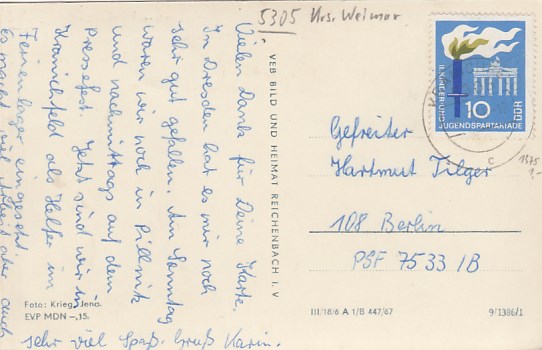 5305 Krs. Weimar
Vielen Dank für Deine Karte.
In Dresden hat es mir noch
sehr gut gefallen. Am Sonntag
waren wir noch in Pillnitz
und nachmittags auf dem
Pressefest. Jetzt sind wir in
Kranichfeld als Helfer im
Ferienlager eingesetzt.
Es macht viel Arbeit aber auch
sehr viel Spaß. Gruß Karin.
Foto: Krieg, Jena.
EVP MDN –,15.
VEB BILD UND HEIMAT REICHENBACH I. V
II. KINDER- UND
JUGENDSPARTAKIADE
10
DDR
Gefreiter
Hartmut Tilger
108 Berlin
PSF 7533/B
III/18/6 A 1/B 447/67
9/1386/1
c
1375